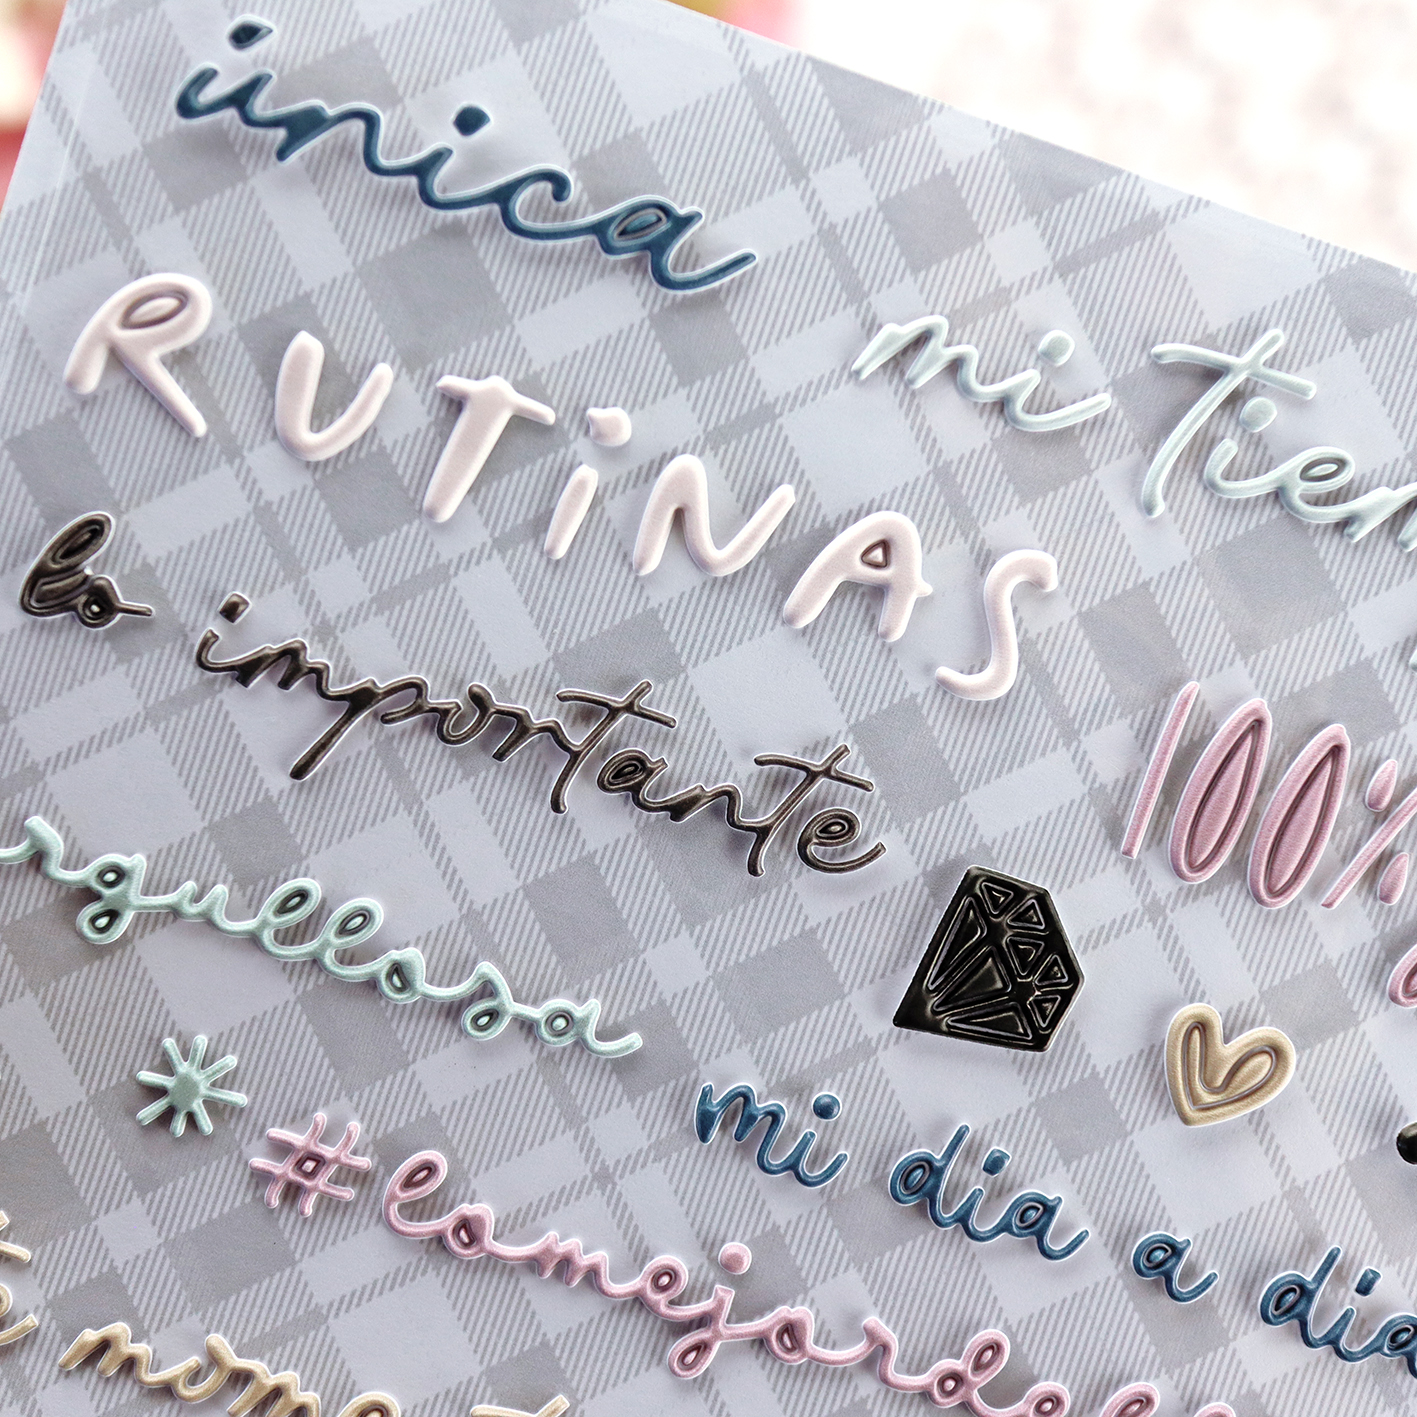 única
RUTiNAS
mi tien
lo importante
100%
rgullosa
mi dia a dia
#lomejordel
mom